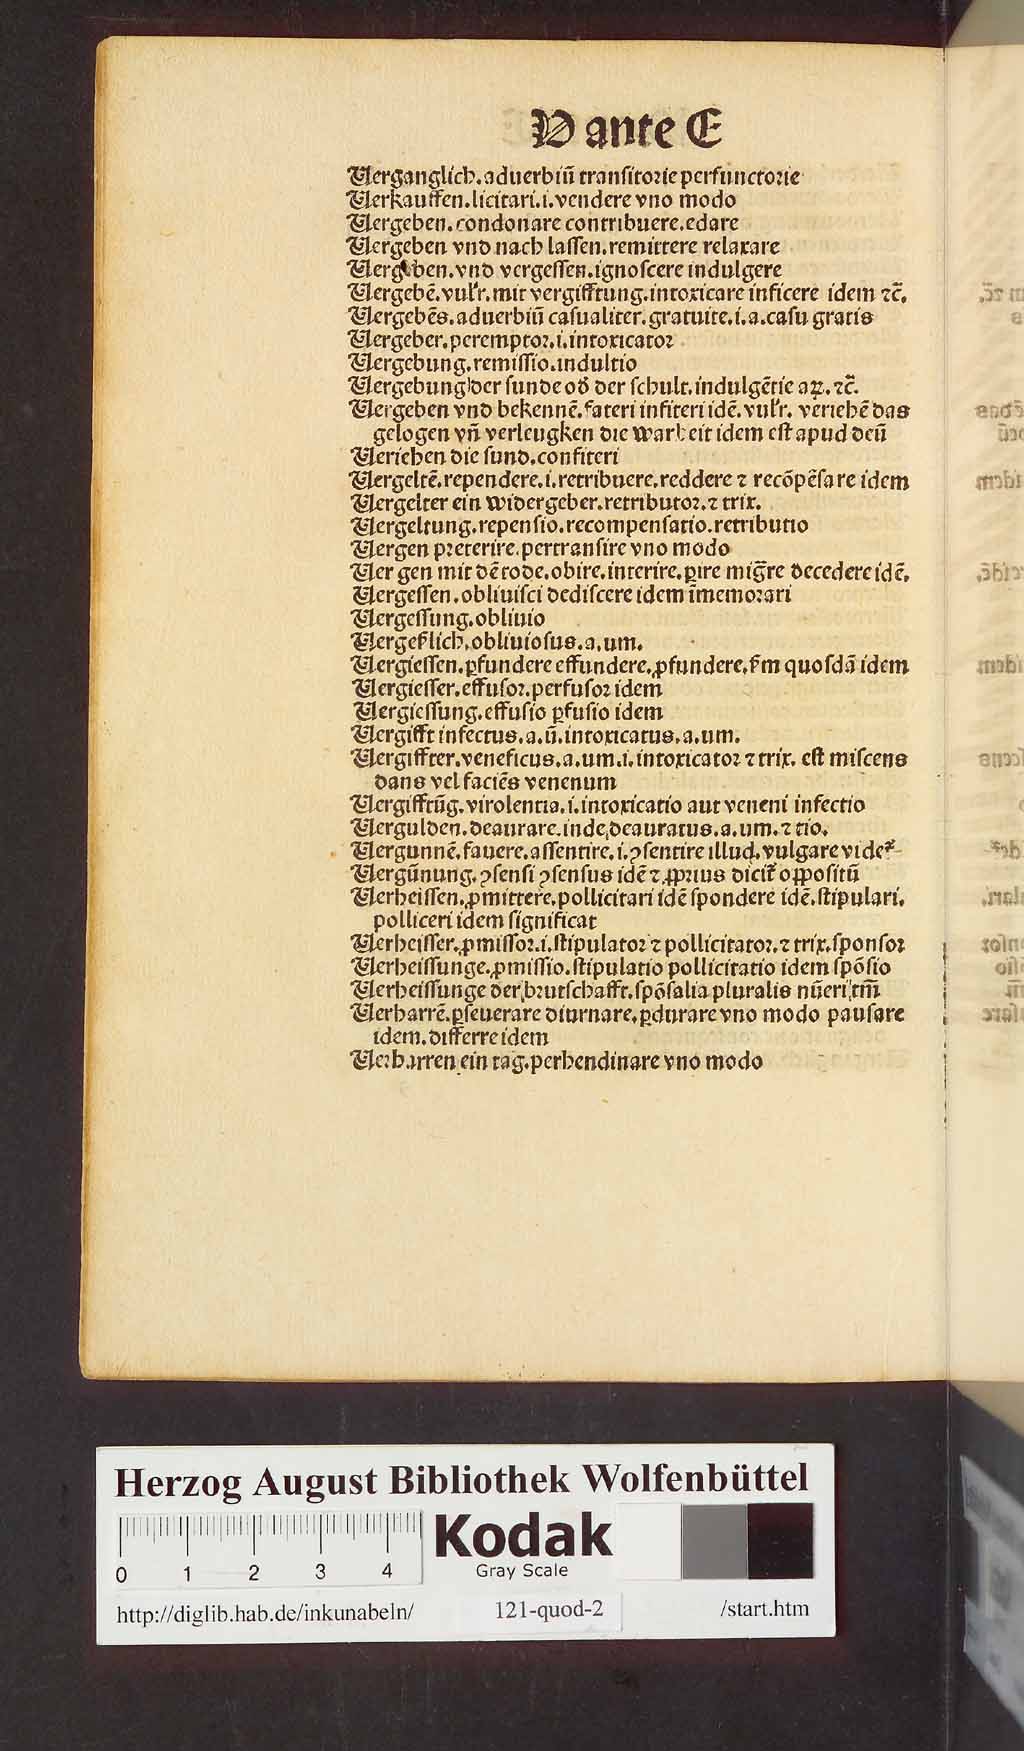 V ante E
Verganglich.aduerbiū transitorie perfunctorie
Verkauffen.licitari.i.vendere vno modo
Vergeben.condonare contribuere.edare
Vergeben vnd nach lassen.remittere relaxare
Vergeben.vnd vergessen.ignoscere indulgere
Vergebē.vul'r.mit vergifftung.intoxicare inficere idem ⁊c̄.
Vergebēs.aduerbiū casualiter.gratuite.i.a.casu gratis
Vergeber.peremptor.i.intoxicator
Vergebung.remissio.indultio
Vergebung der sunde od̕ der schult.indulgētie aꝝ.⁊c̄.
Vergeben vnd bekennē.fateri infiteri idē.vul'r. veriehē das
gelogen vn̄ verleugken die warheit idem est apud deū
Veriehen die sund.confiteri
Vergeltē.rependere.i.retribuere.reddere ⁊ recōpēsare idem
Vergelter ein widergeber.retributor.⁊ trix.
Vergeltung.repensio.recompensatio.retributio
Vergen preterire.pertransire vno modo
Ver gen mit dē tode.obire.interire.ꝑire mig̅re decedere idē.
Vergessen.obliuisci dediscere idem īmemorari
Vergessung.obliuio
Vergeßlich.obliuiosus.a.um.
Vergiessen.ꝑfundere effundere.ꝓfundere.s̄m quosdā idem
Vergiesser.effusor.perfusor idem
Vergiessung.effusio ꝑfusio idem
Vergifft infectus.a.ū.intoxicatus.a.um.
Vergiffter.veneficus.a.um.i.intoxicator ⁊ trix. est miscens
dans vel faciēs venenum
Vergifftūg.virolentia.i.intoxicatio aut veneni infectio
Vergulden.deaurare.inde deauratus.a.um.⁊ tio.
Vergunnē.fauere.assentire.i.ꝯsentire illud.vulgare videt᷑
Vergūnung.ꝯsensi ꝯsensus idē ⁊ ꝓprius dicit᷑ oꝓpositū
Verheissen.ꝓmittere.pollicitari idē spondere idē.stipulari.
polliceri idem significat
Verheisser.ꝓmissor.i.stipulator ⁊ pollicitator.⁊ trix.sponsor
Verheissunge.ꝓmissio.stipulatio pollicitatio idem spōsio
Verheissunge der brutschafft.spōsalia pluralis nūeri tm̄
Verharrē.ꝑseuerare diurnare.ꝑdurare vno modo pausare
idem.differre idem
Verharren ein tag.perhendinare vno modo
Herzog August Bibliothek Wolfenbüttel
0 1 2 3 4
Kodak
Gray Scale
http://diglib.hab.de/inkunabeln/ 121-quod-2 /start.htm